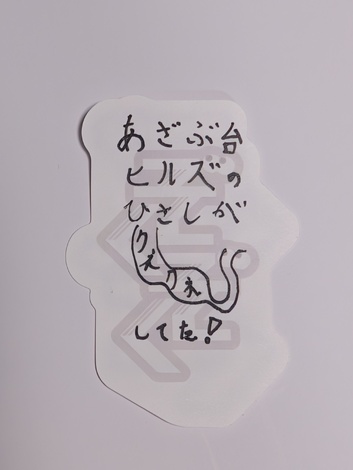 あざぶ台
ヒルズの
ひさしが
クネクネ
してた!